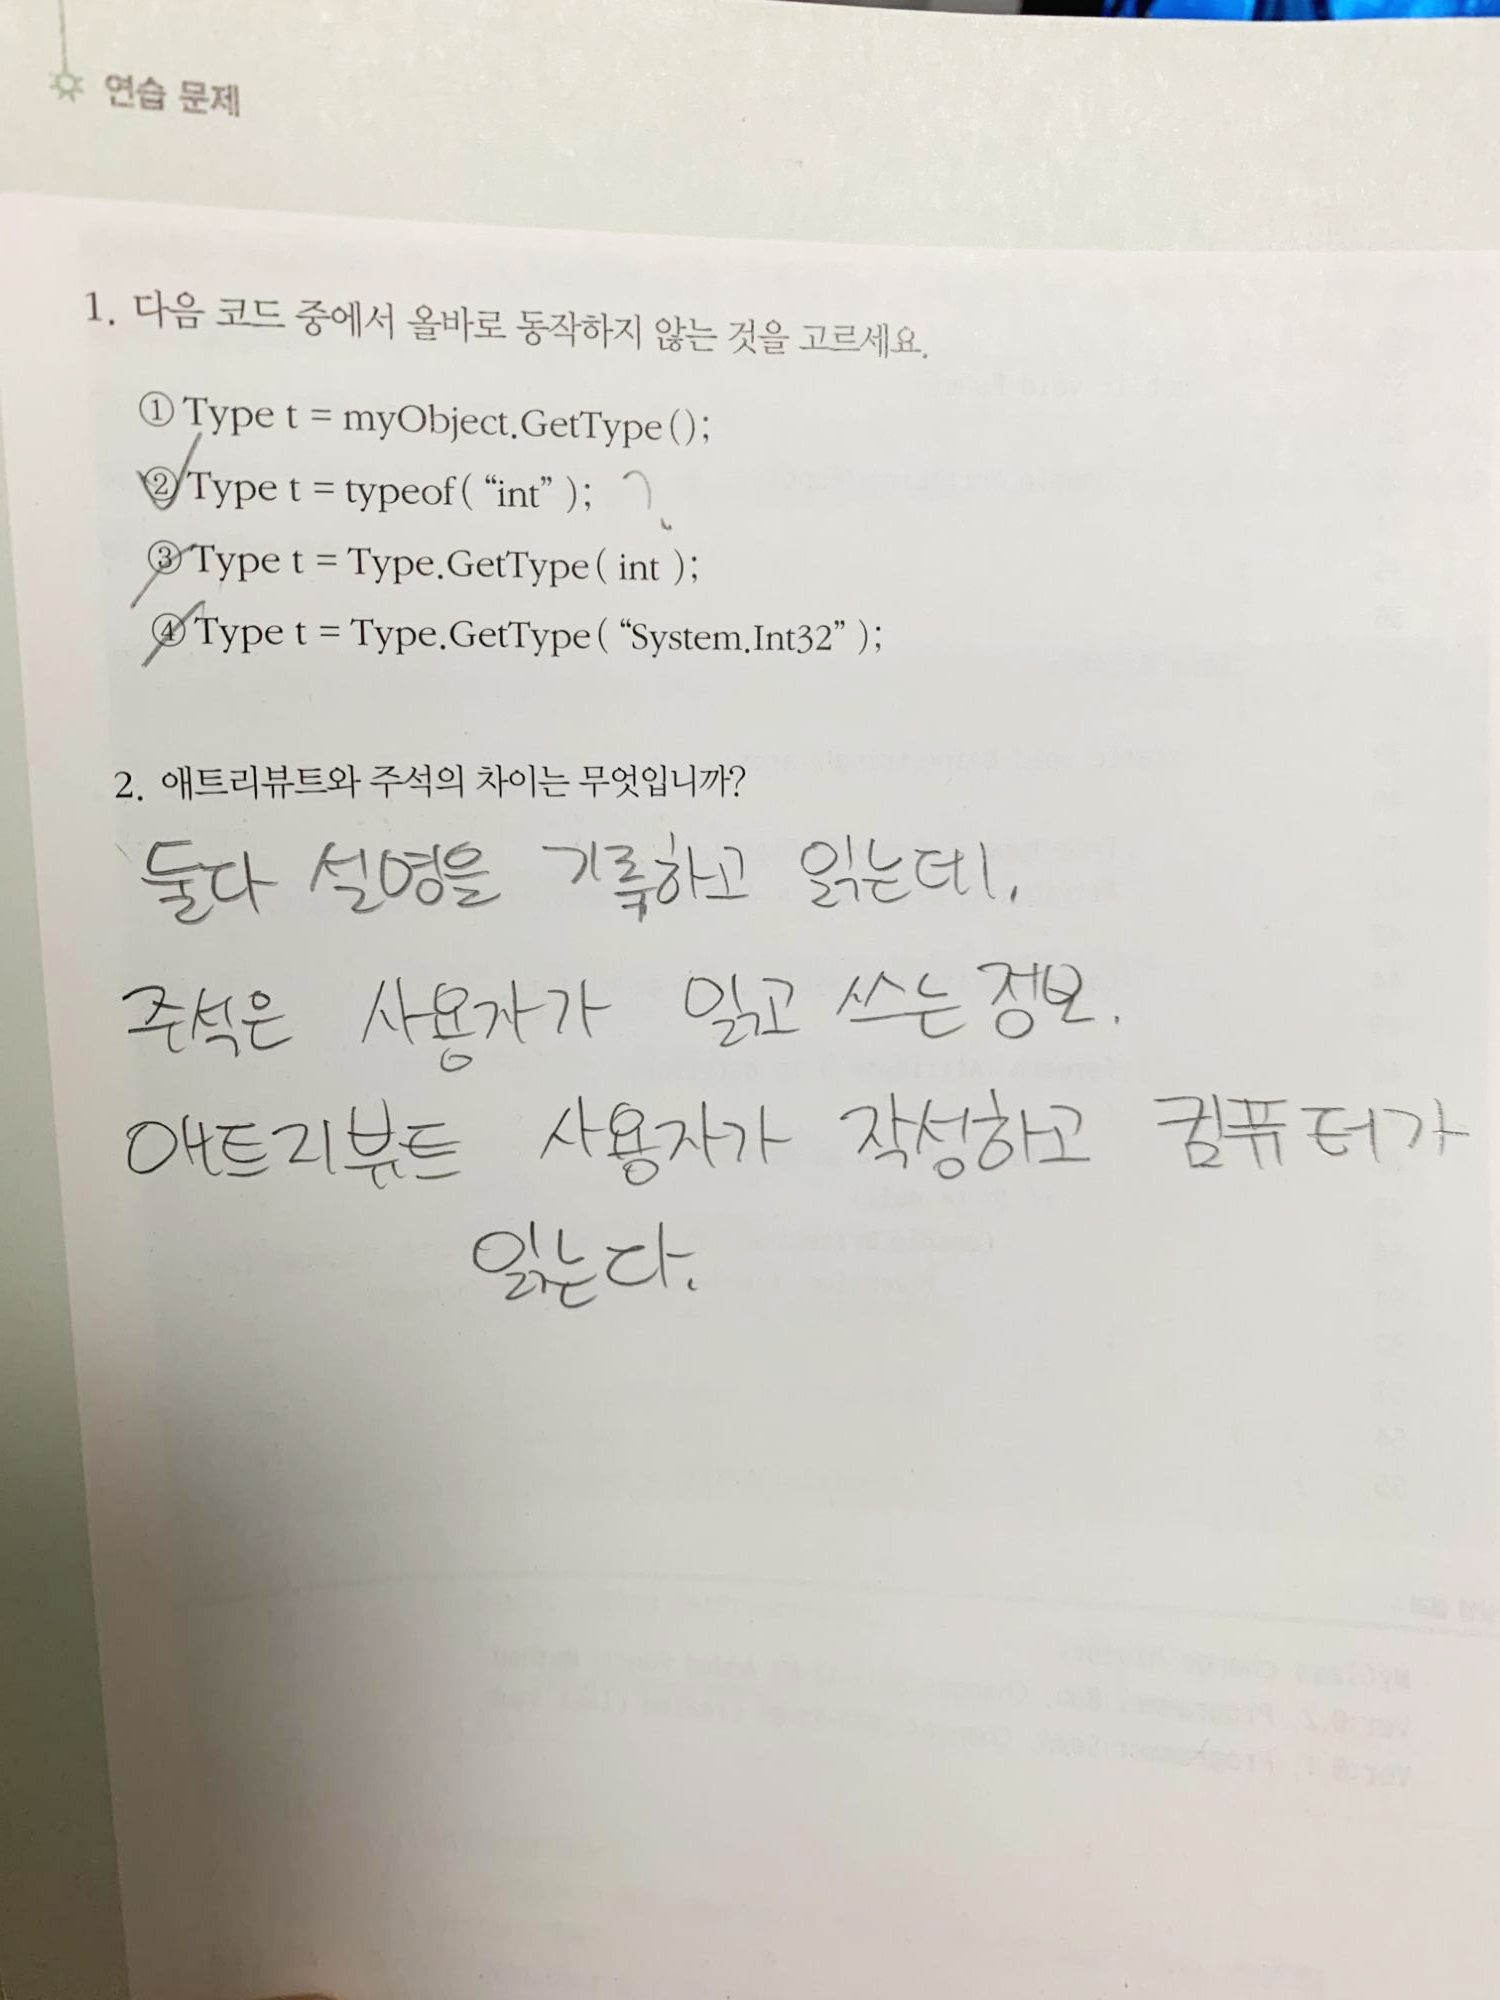 연습 문제
1. 다음 코드 중에서 올바로 동작하지 않는 것을 고르세요.
① Type t = myObject.GetType();
② Type t = typeof( “int” ); ?
③ Type t = Type.GetType( int );
④ Type t = Type.GetType( “System.Int32” );
2. 애트리뷰트와 주석의 차이는 무엇입니까?
둘다 설명을 기록하고 읽는데,
주석은 사용자가 읽고 쓰는 정보.
애트리뷰트 사용자가 작성하고 컴퓨터가
읽는다.